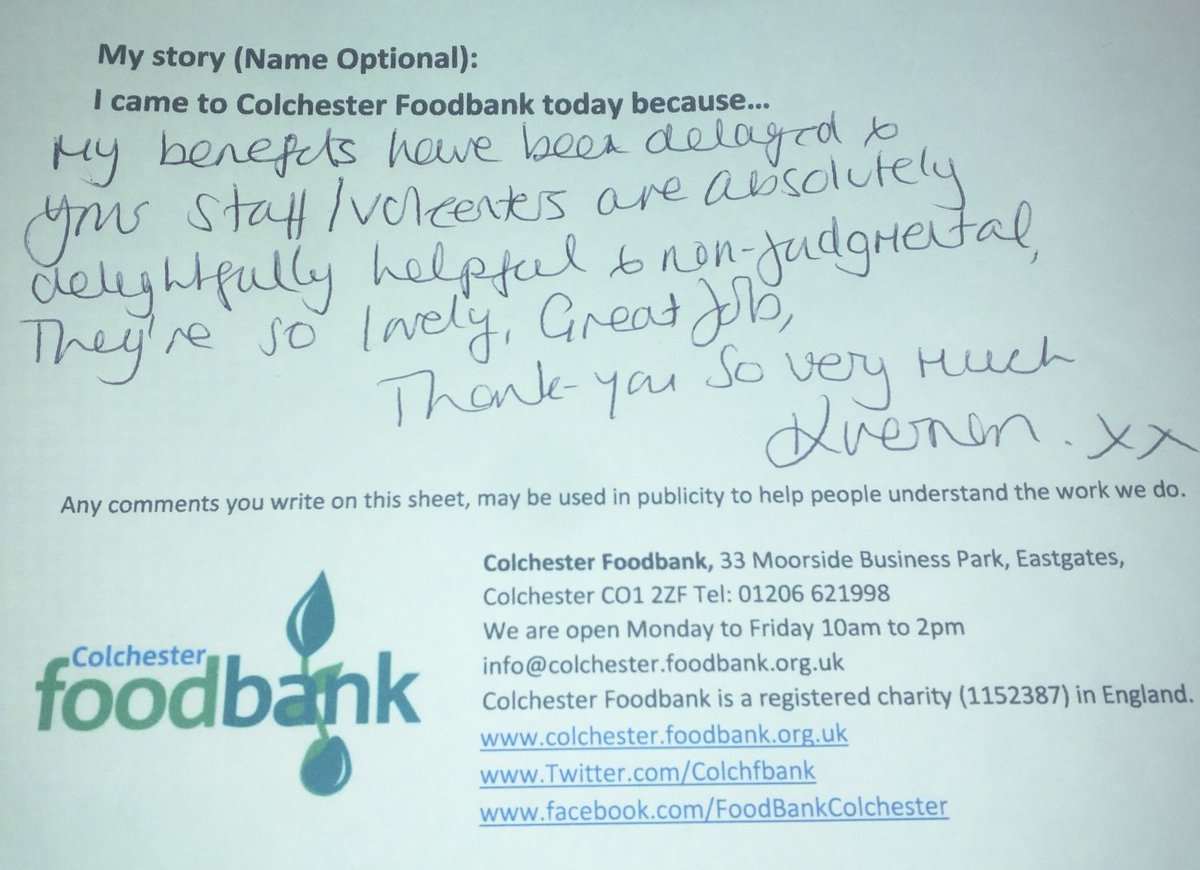 My story (Name Optional):
I came to Colchester Foodbank today because...
My benefits have been delayed &
your staff/volunteers are absolutely
delightfully helpful & non-judgmental,
They're so lovely, Great Job,
Thank-you so very much
xx
Any comments you write on this sheet, may be used in publicity to help people understand the work we do.
Colchester
foodbank
Colchester Foodbank, 33 Moorside Business Park, Eastgates,
Colchester CO1 2ZF Tel: 01206 621998
We are open Monday to Friday 10am to 2pm
info@colchester.foodbank.org.uk
Colchester Foodbank is a registered charity (1152387) in England.
www.colchester.foodbank.org.uk
www.Twitter.com/Colchfbank
www.facebook.com/FoodBankColchester